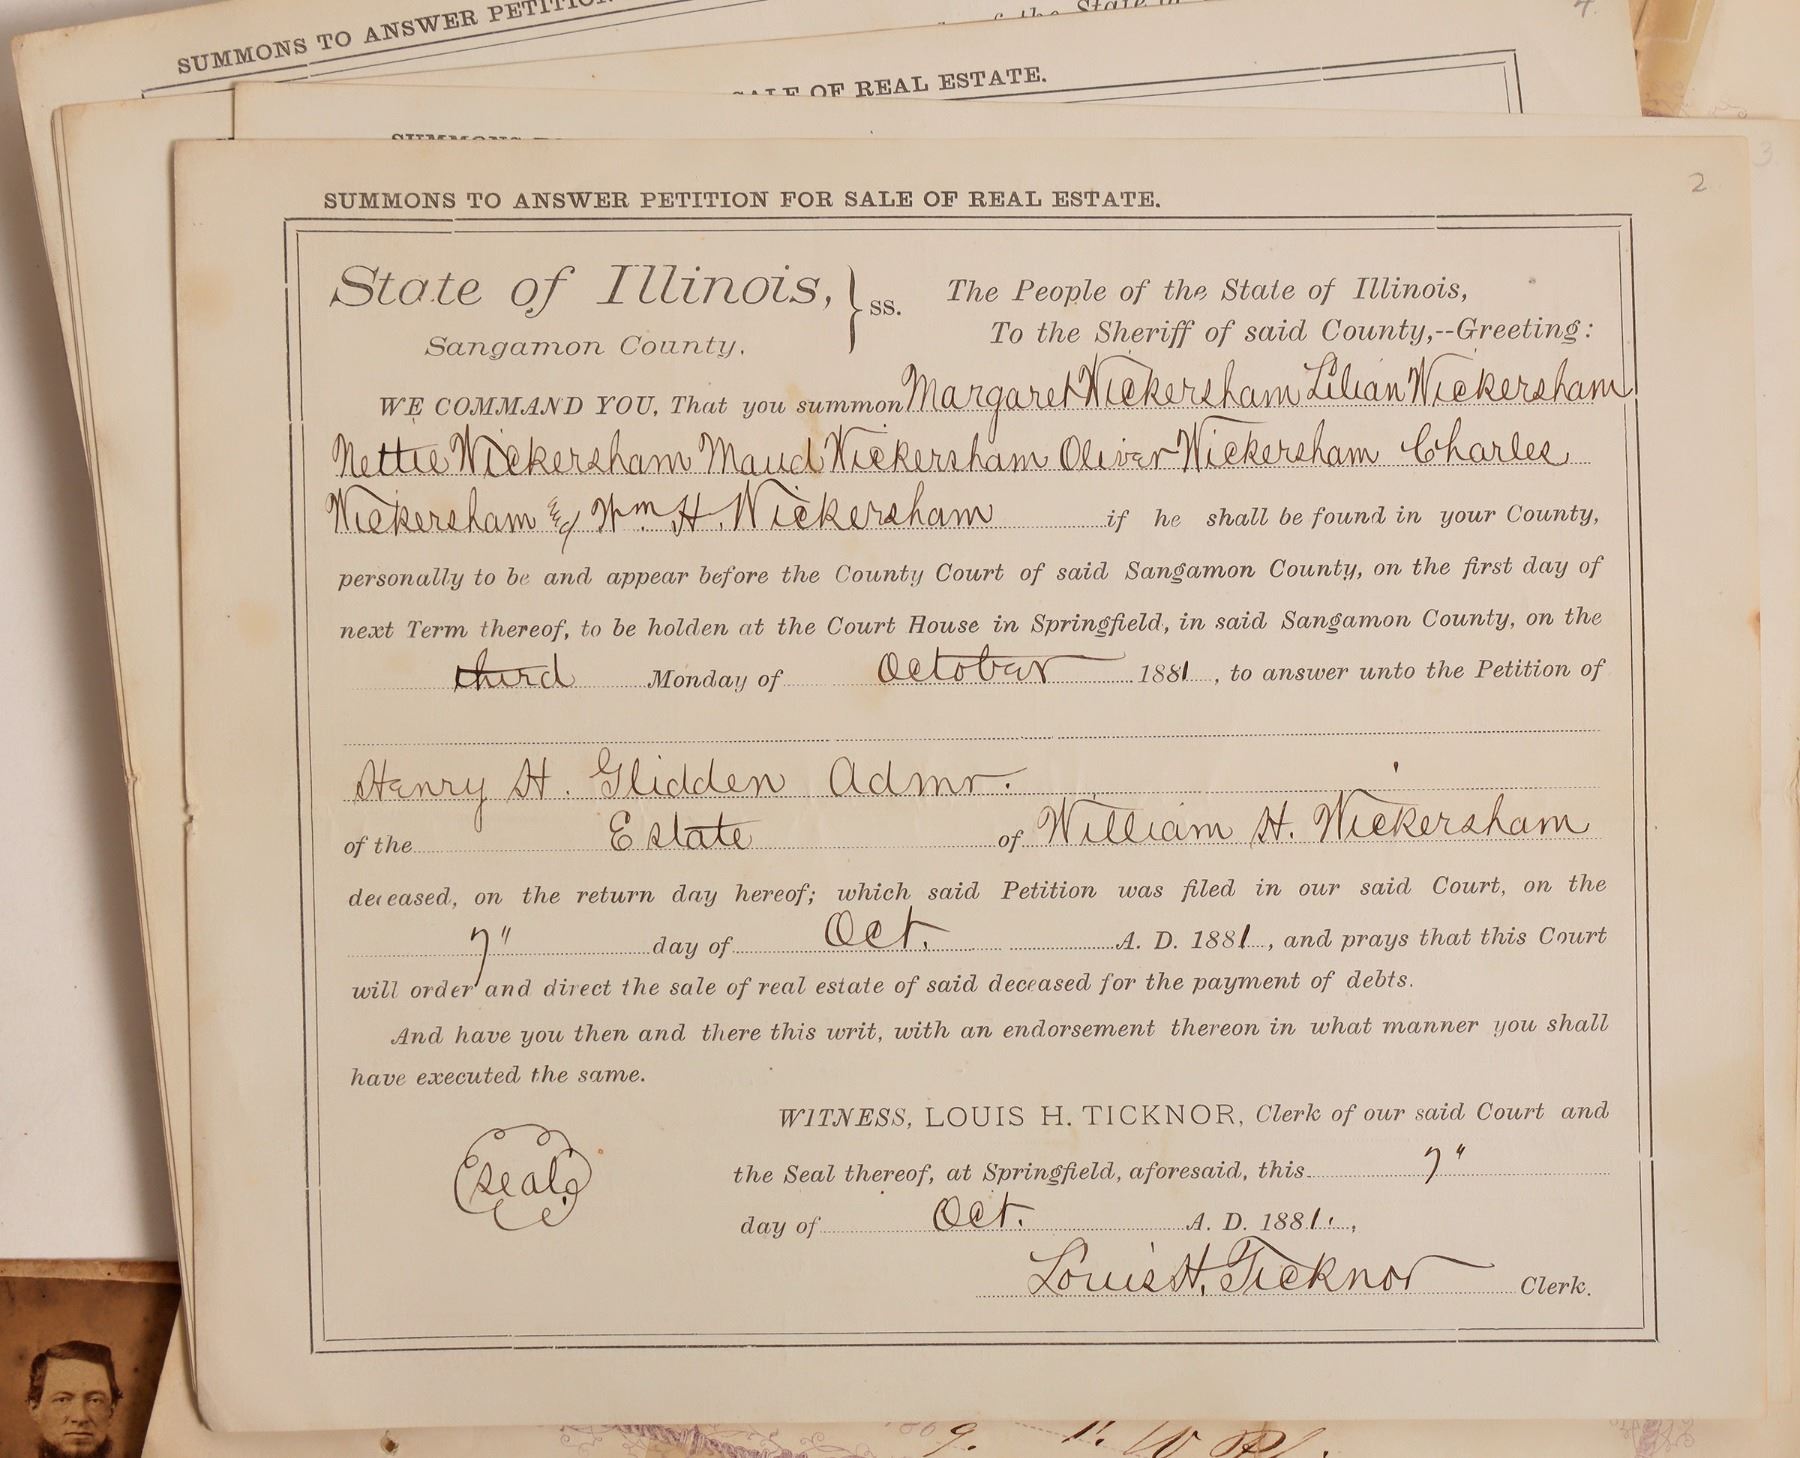 SUMMONS TO ANSWER PETITION
of the State
4.
SALE OF REAL ESTATE.
SUMMONS
3
2
SUMMONS TO ANSWER PETITION FOR SALE OF REAL ESTATE.
State of Illinois, } ss. The People of the State of Illinois,
Sangamon County, To the Sheriff of said County,--Greeting:
WE COMMAND YOU, That you summon Margaret Wickersham Lilian Wickersham
Nettie Wickersham Maud Wickersham Oliver Wickersham Charles
Wickersham & Wm H. Wickersham if he shall be found in your County,
personally to be and appear before the County Court of said Sangamon County, on the first day of
next Term thereof, to be holden at the Court House in Springfield, in said Sangamon County, on the
third Monday of October 1881, to answer unto the Petition of
Henry H. Glidden Admr.
of the Estate of William H. Wickersham
deceased, on the return day hereof; which said Petition was filed in our said Court, on the
7" day of Oct. A. D. 1881, and prays that this Court
will order and direct the sale of real estate of said deceased for the payment of debts.
And have you then and there this writ, with an endorsement thereon in what manner you shall
have executed the same.
WITNESS, LOUIS H. TICKNOR, Clerk of our said Court and
seal the Seal thereof, at Springfield, aforesaid, this 7"
day of Oct. A. D. 1881.,
Louis H. Ticknor Clerk.